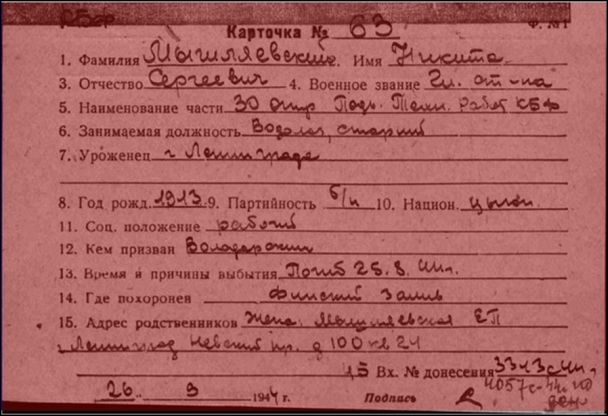 РБФ
Карточка № 63 Ф. №1
1. Фамилия Мышляевский. Имя Никита
3. Отчество Сергеевич 4. Военное звание Гл. ст-на
5. Наименование части 30 Подв. Техн. работ КБФ
6. Занимаемая должность Водолаз, старший
7. Уроженец г Ленинграда
8. Год рожд. 1913 9. Партийность б/п 10. Национ.
11. Соц. положение рабочий
12. Кем призван Володарским
13. Время и причины выбытия Погиб 25.8.44г.
14. Где похоронен Финский залив
15. Адрес родственников Жена Мышляевская ЕП
г Ленинград Невский пр. д 100 кв 24
Вх. № донесения
26 9 1944 г. Подпись